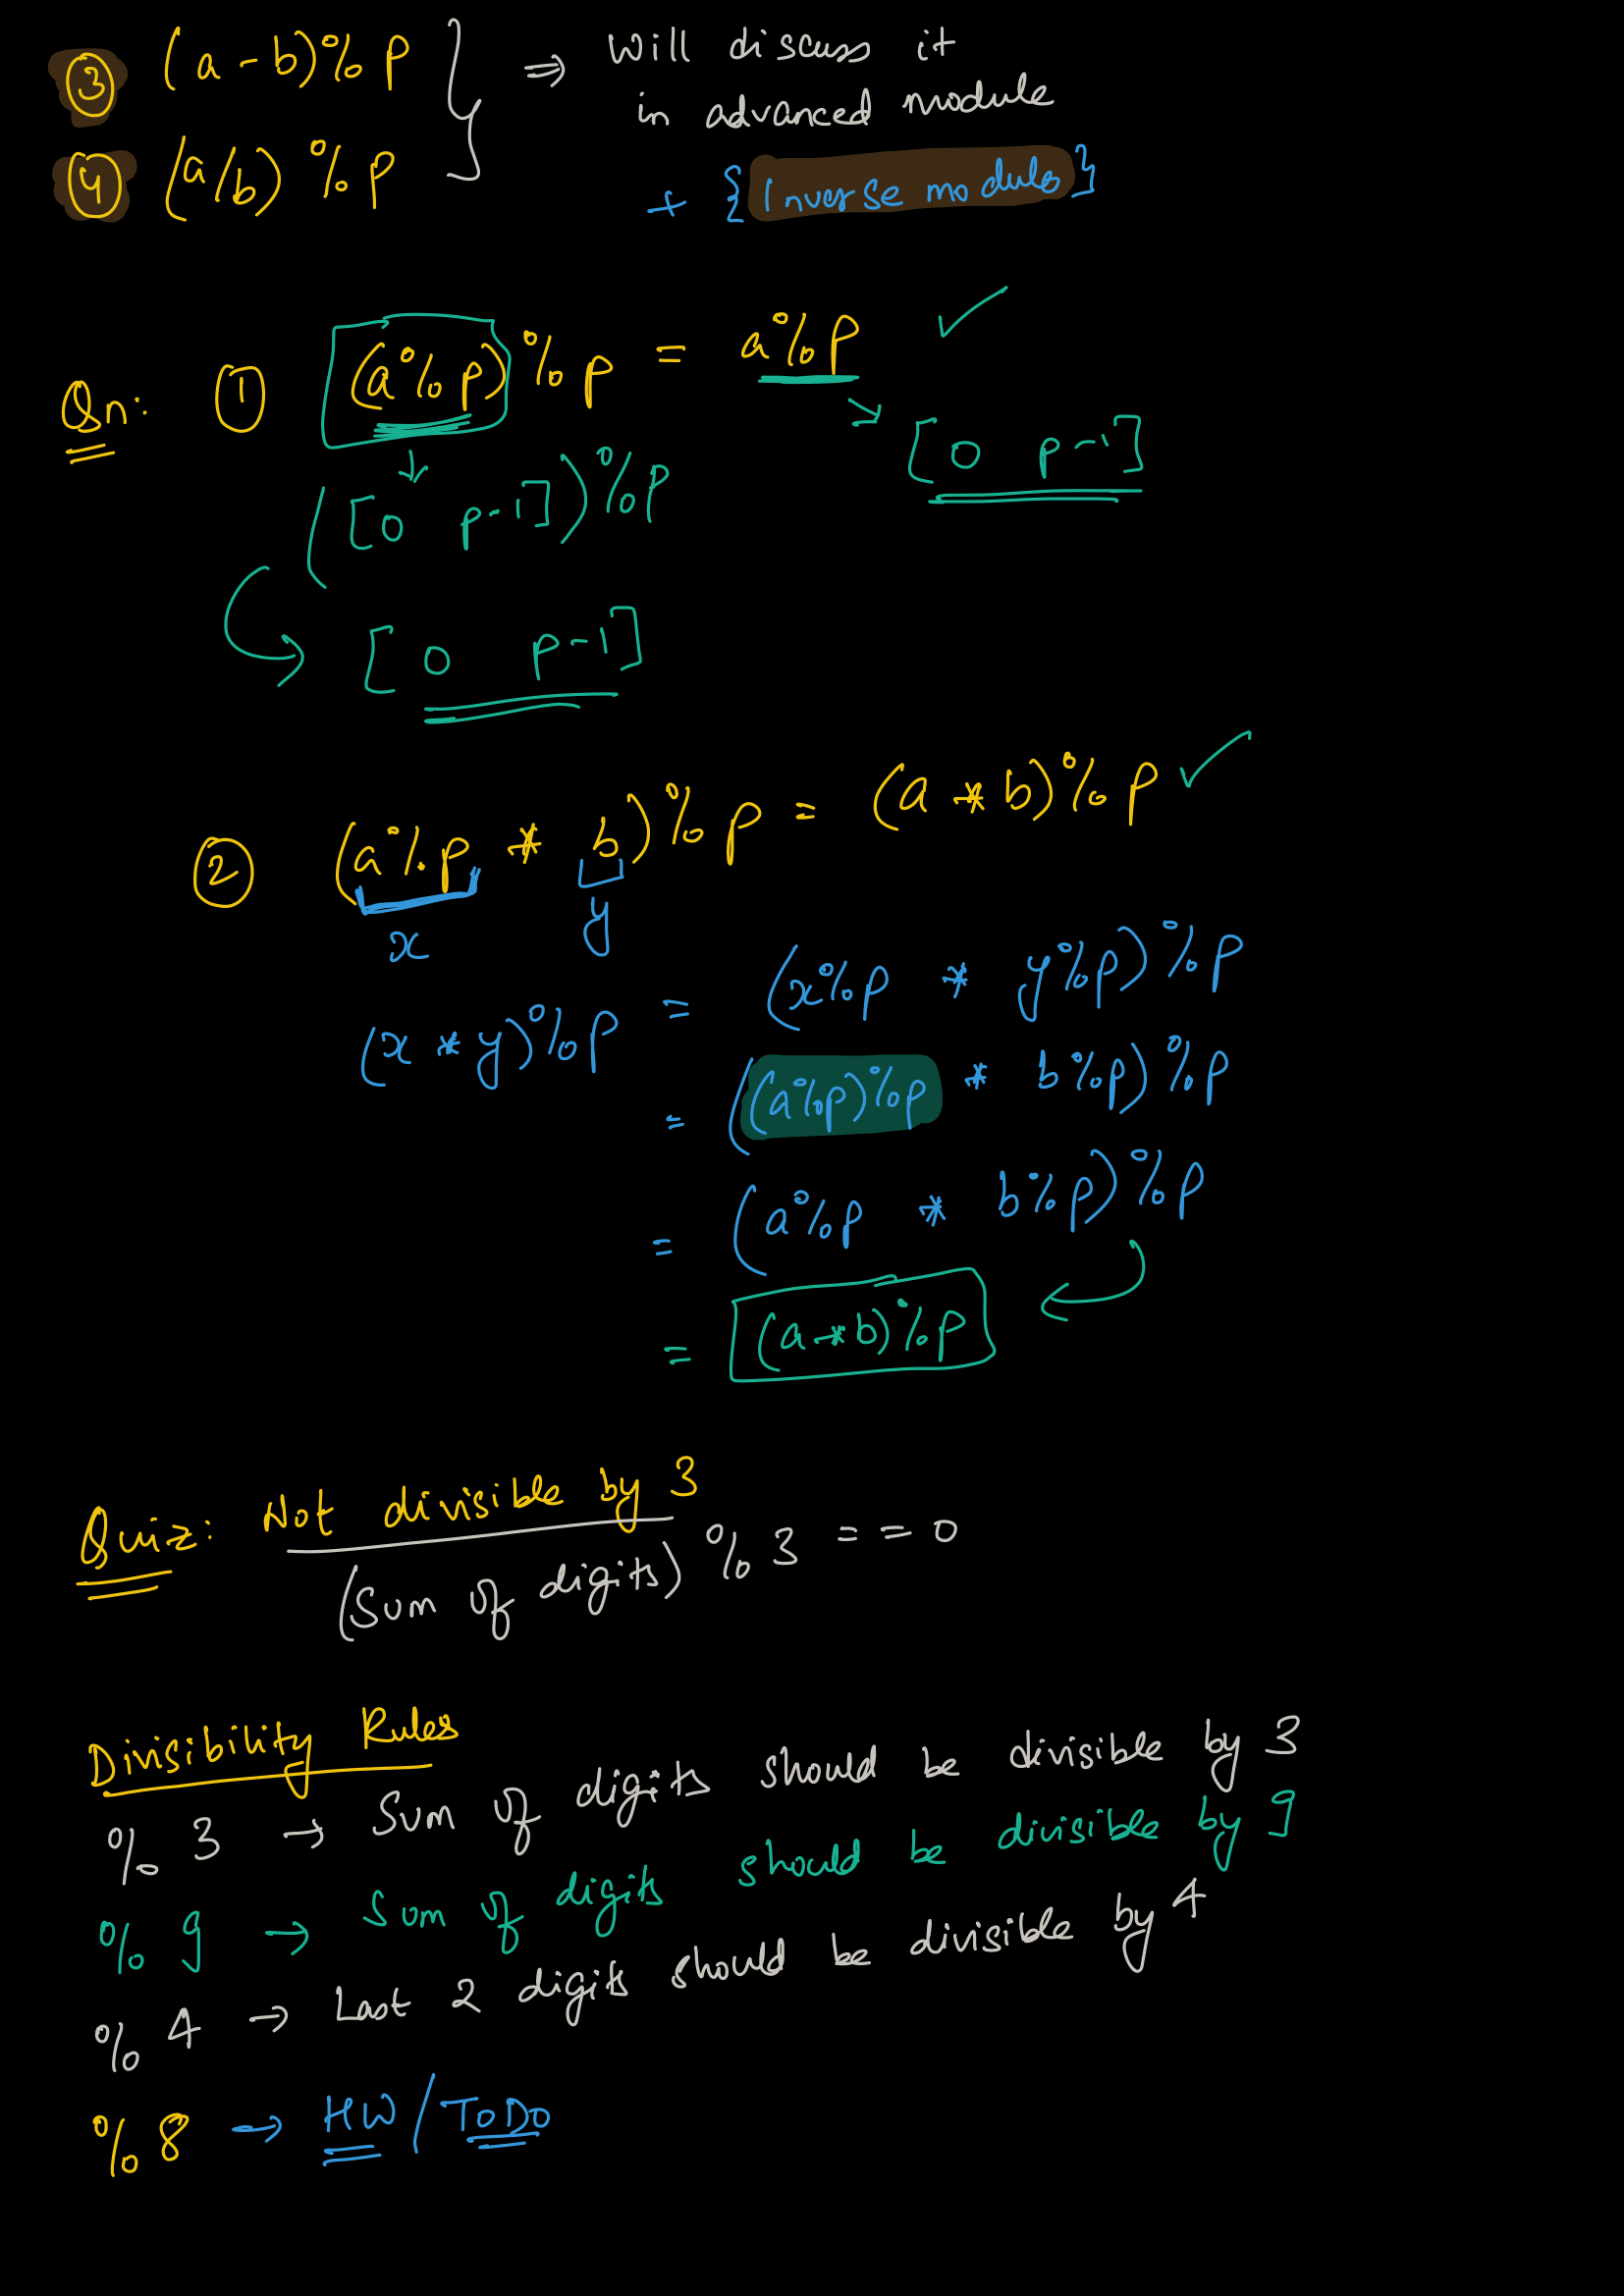 ③ (a - b) % p } ⇒ Will discuss it
in advanced module
④ (a/b) % p
+ {Inverse modulo}
Qn: ① (a % p) % p = a % p ✓
↓ ↘ [0 p-1]
([0 p-1]) % p
[0 p-1]
② (a % p * b) % p = (a * b) % p ✓
x y
(x * y) % p = (x % p * y % p) % p
= ((a % p) % p * b % p) % p
= (a % p * b % p) % p
= (a * b) % p
Quiz: Not divisible by 3
(Sum of digits) % 3 == 0
Divisibility Rules
% 3 → Sum of digits should be divisible by 3
% 9 → Sum of digits should be divisible by 9
% 4 → Last 2 digits should be divisible by 4
% 8 → HW / ToDo